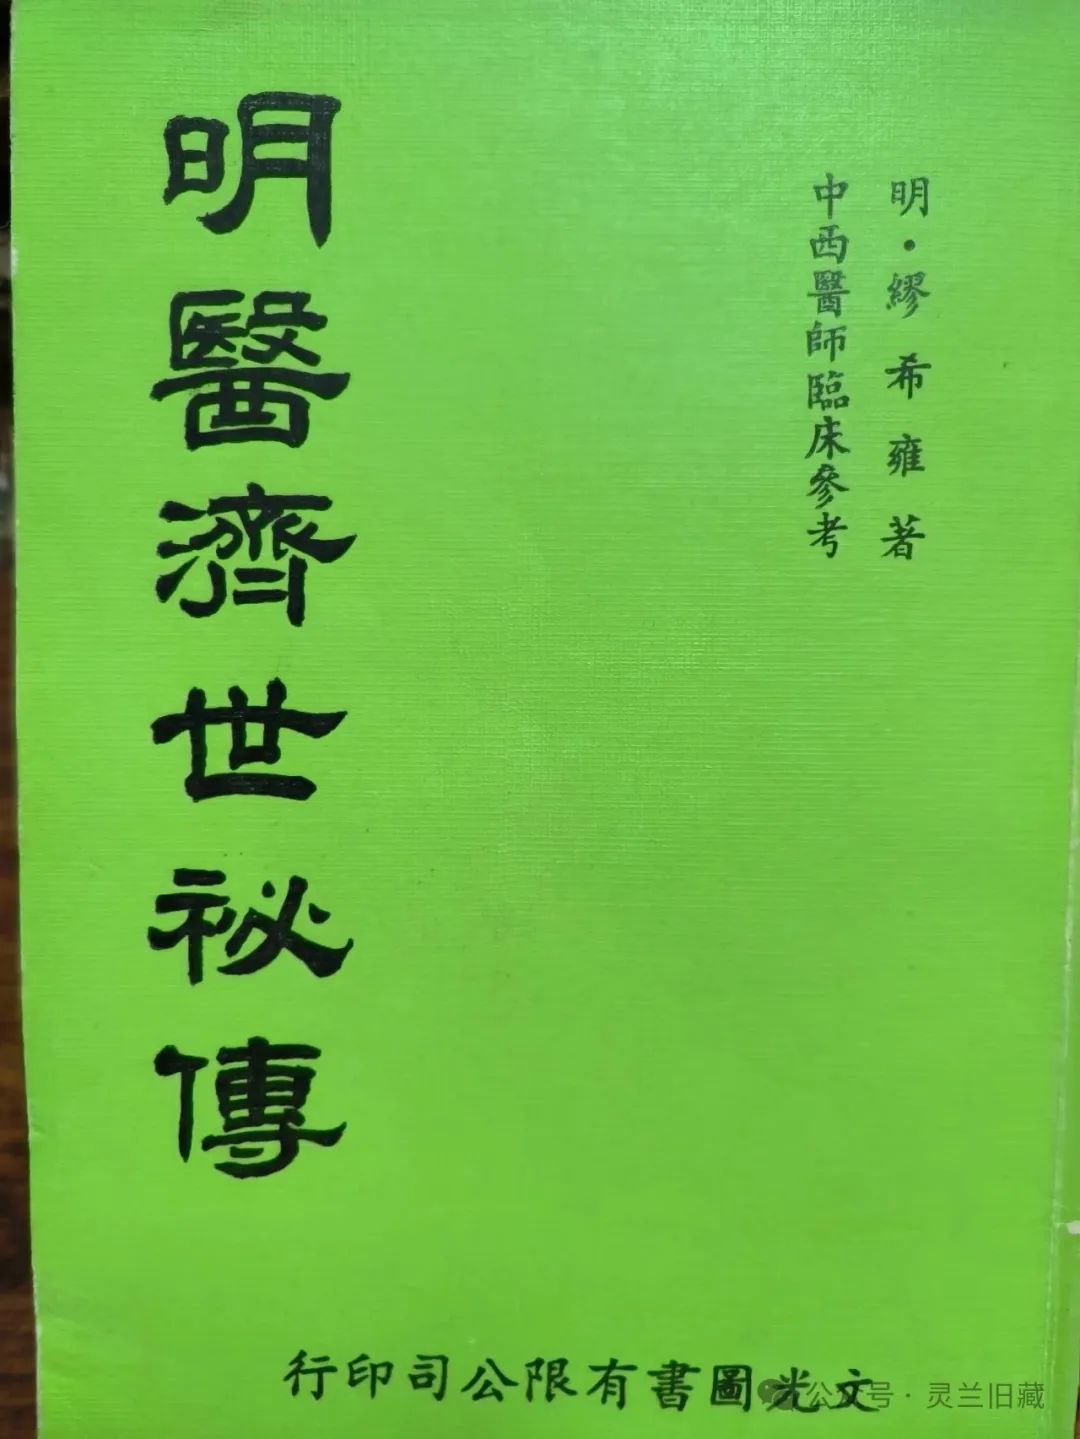 明·繆希雍著
中西醫師臨床參考
明醫濟世祕傳
文光圖書有限公司印行
公众号·灵兰旧藏